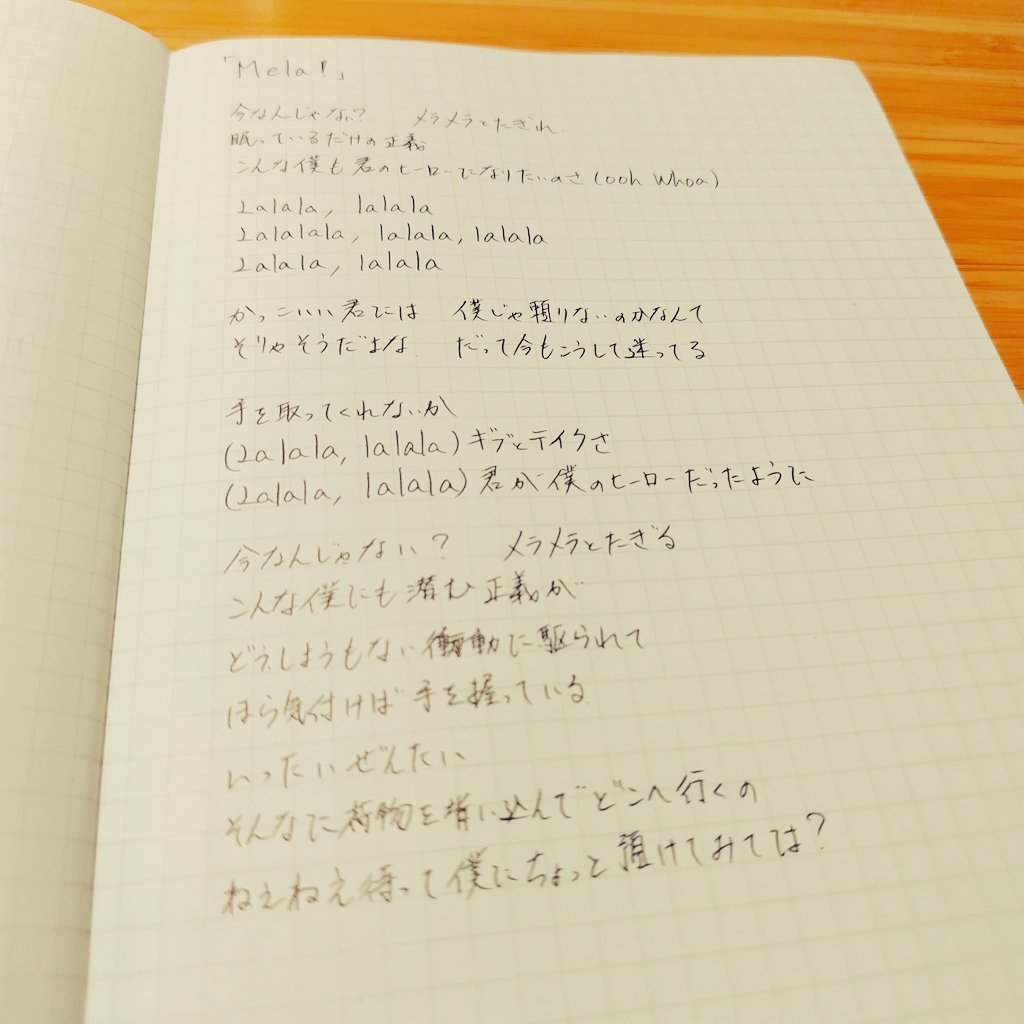 「Mela!」
今なんじゃない? メラメラとたぎれ
眠っているだけの正義
こんな僕も君のヒーローになりたいのさ (ooh whoa)
Lalala, lalala
Lalalala, lalala, lalala
Lalala, lalala
かっこいい君には 僕じゃ頼りないのかなんて
そりゃそうだよな だって今もこうして迷ってる
手を取ってくれないか
(Lalala, lalala) ギブとテイクさ
(Lalala, lalala) 君が僕のヒーローだったように
今なんじゃない? メラメラとたぎる
こんな僕にも潜む正義が
どうしようもない衝動に駆られて
ほら気付けば手を握っている
いったいぜんたい
そんなに荷物を背い込んでどこへ行くの
ねえねえ待って僕にちょっと預けてみては?